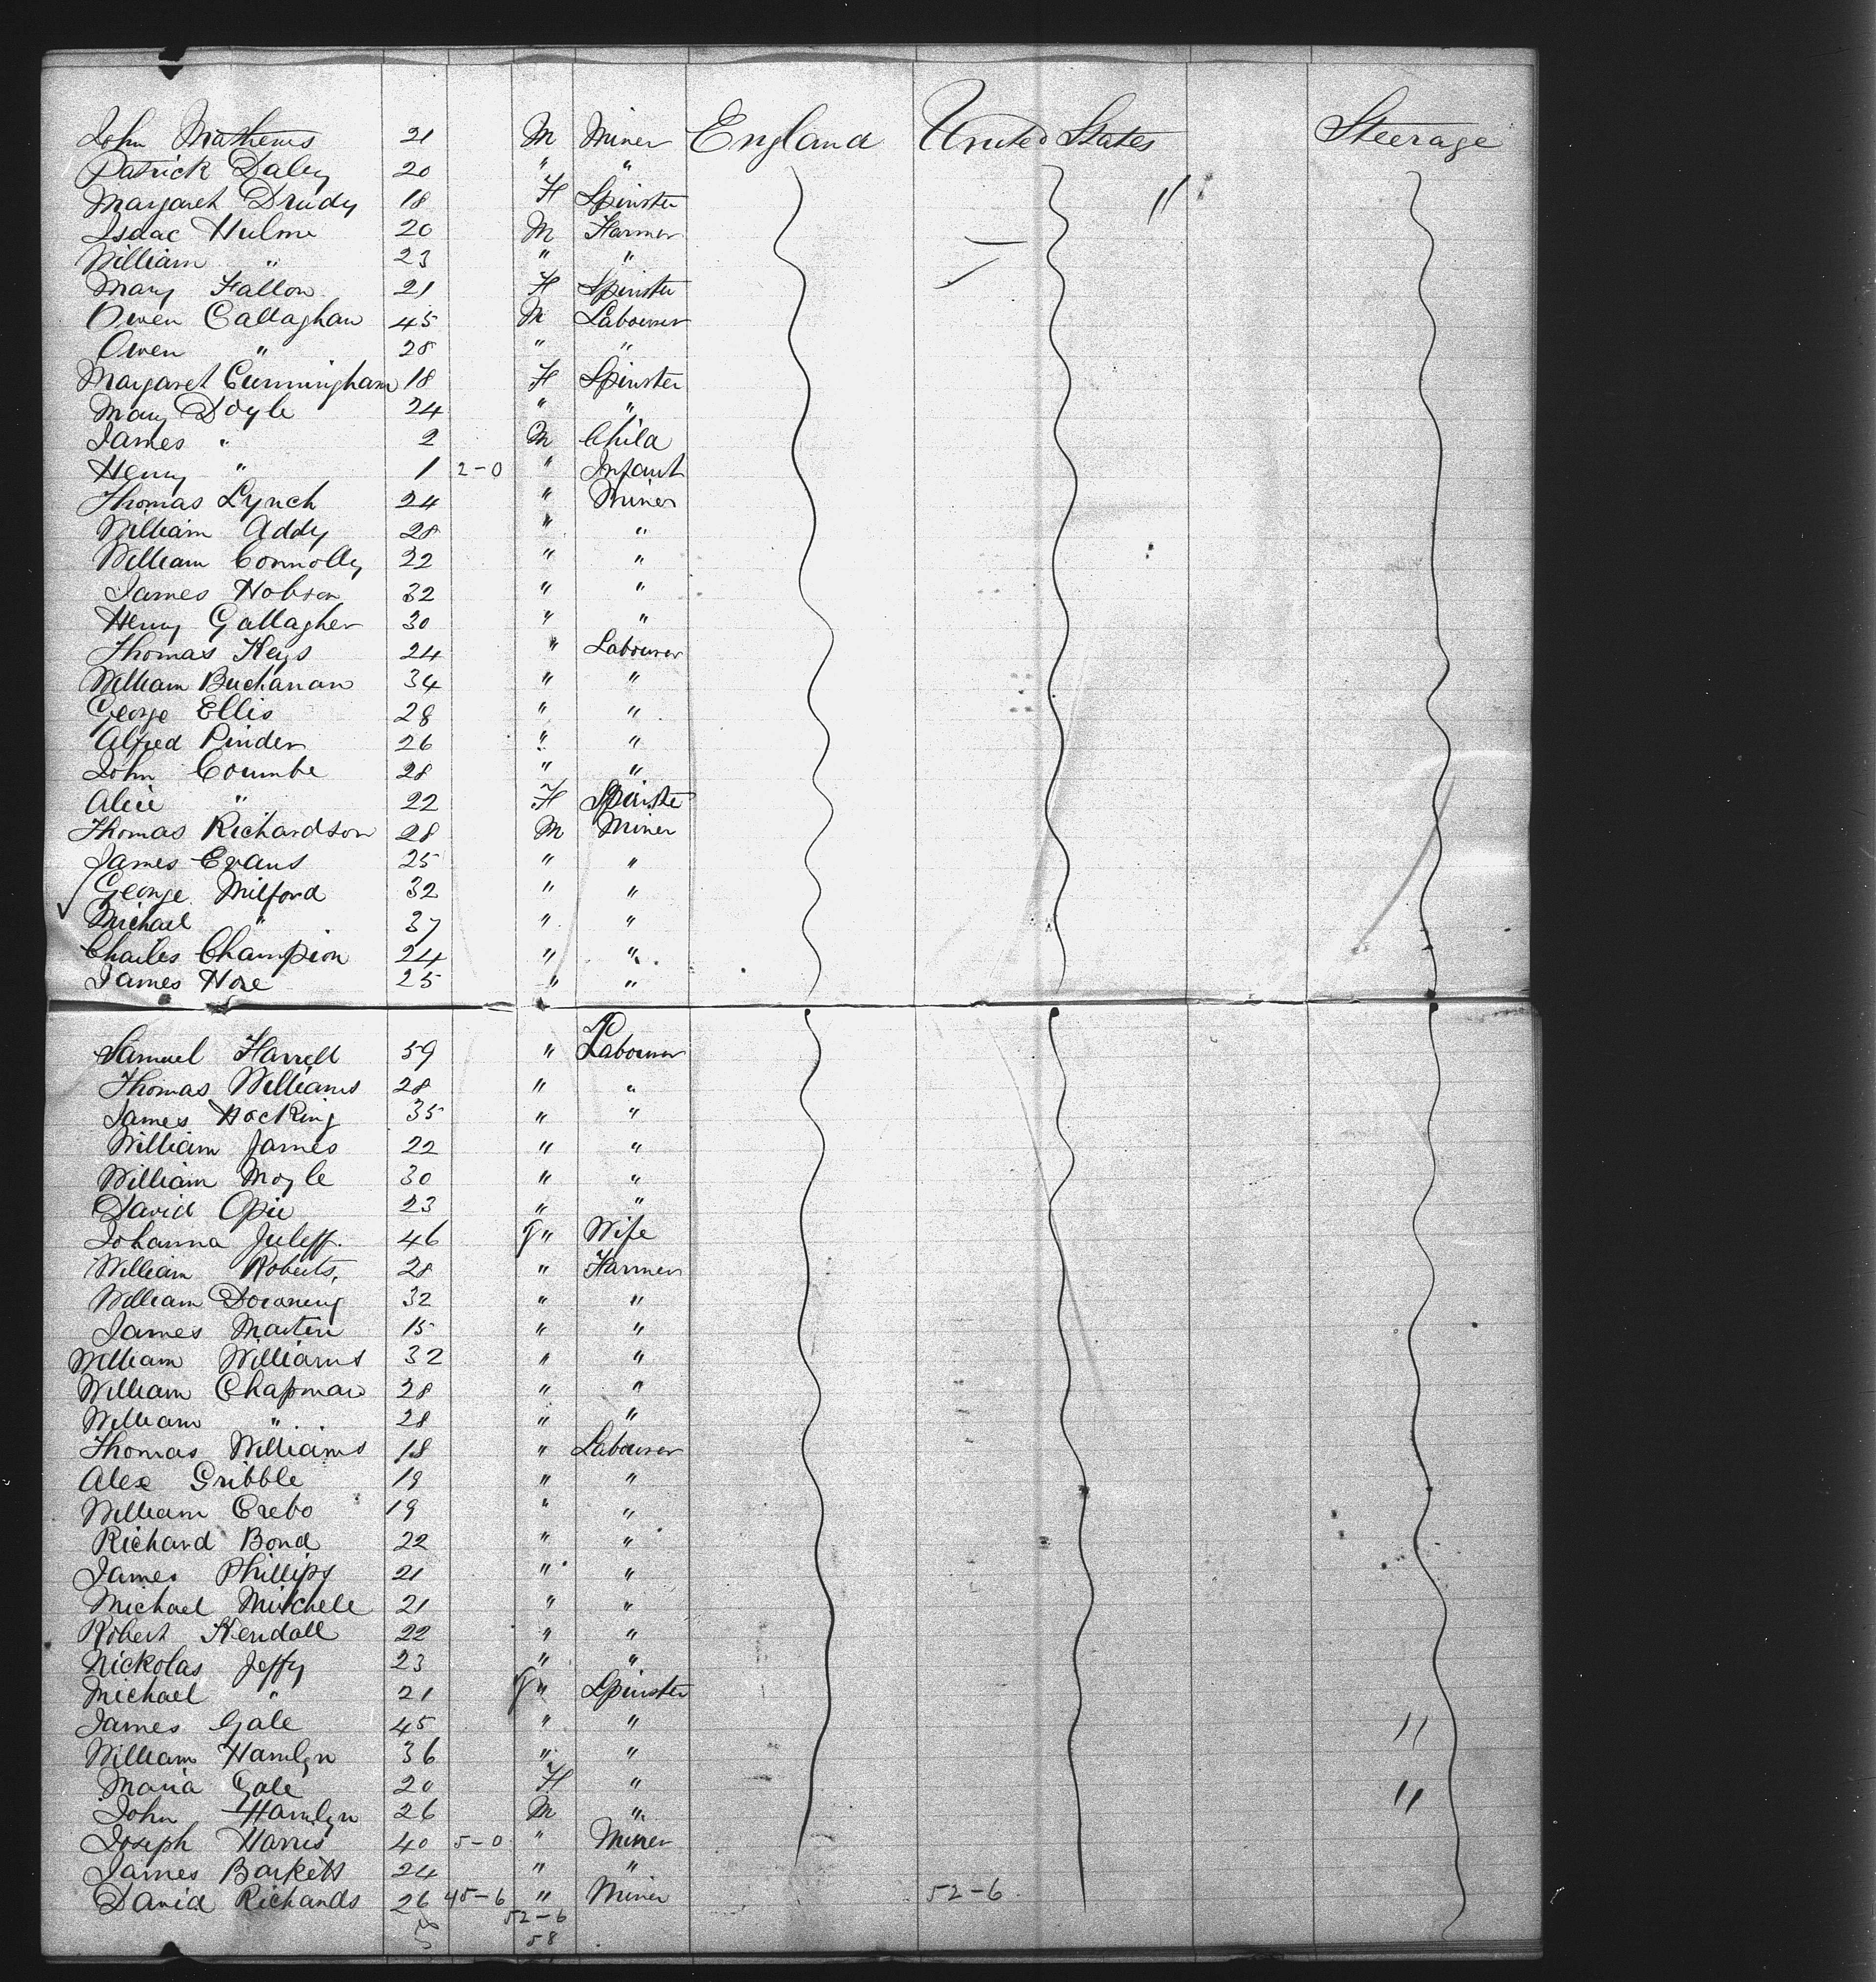 John Mathews 21 M Miner England United States Steerage
Patrick Daley 20 " "
Margaret Drudy 18 F Spinster
Isaac Hulme 20 M Farmer
William " 23 " "
Mary Fallon 21 F Spinster
Owen Callaghan 45 M Labourer
Owen " 28 " "
Margaret Cunningham 18 F Spinster
Mary Doyle 24 " "
James " 2 M Child
Henry " 1 2-0 " Infant
Thomas Lynch 24 " Miner
William Addy 28 " "
William Connolly 22 " "
James Hobson 32 " "
Henry Gallagher 30 " "
Thomas Keys 24 " Labourer
William Buchanan 34 " "
George Ellis 28 " "
Alfred Pinder 26 " "
John Coumbe 28 " "
Alice " 22 F Spinster
Thomas Richardson 28 M Miner
James Evans 25 " "
George Milford 32 " "
Michael " 37 " "
Charles Champion 24 " "
James Hore 25 " "
Samuel Harrell 59 " Labourer
Thomas Williams 28 " "
James Hocking 35 " "
William James 22 " "
William Moyle 30 " "
David Opie 23 " "
Johanna Juleff 46 " Wife
William Roberts, 28 " Farmer
William 32 " "
James Martin 15 " "
William Williams 32 " "
William Chapman 28 " "
William " 28 " "
Thomas Williams 18 " Labourer
Alex Gribble 19 " "
William Crebo 19 " "
Richard Bond 22 " "
James Phillips 21 " "
Michael Mitchele 21 " "
Robert Kendall 22 " "
Nickolas Jeffy 23 " "
Michael " 21 " Spinster
James Gale 45 " "
William Hamlyn 36 " "
Maria Gale 20 F "
John Hamlyn 26 M "
Joseph Harris 40 5-0 " Miner
James Barkett 24 " "
David Richards 26 45-6 " Miner 52-6
52-6
58